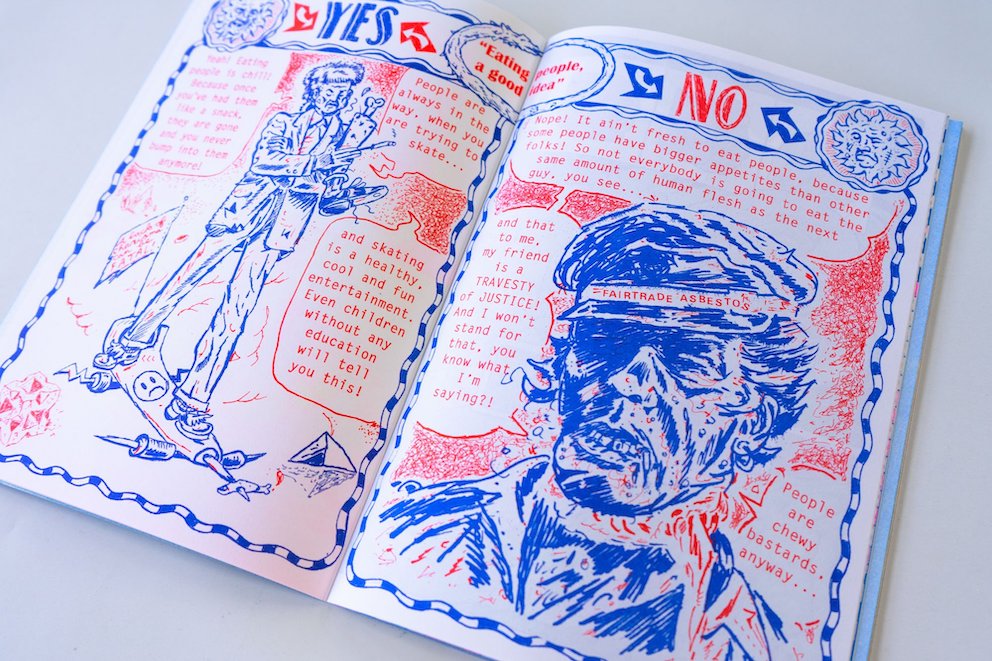 YES
"Eating people,
a good idea"
Yeah! Eating
people is chill!
Because once
you've had them
like a snack,
they are gone
and you never
bump into them
anymore!
People are
always in the
way, when you
are trying to
skate...
and skating
is a healthy,
cool and fun
entertainment.
Even children
without any
education
will tell
you this!
NO
Nope! It ain't fresh to eat people, because
some people have bigger appetites than other
folks! So not everybody is going to eat the
same amount of human flesh as the next
guy, you see...
and that
to me,
my friend
is a
TRAVESTY
of JUSTICE!
And I won't
stand for
that, you
know what
I'm
saying?!
FAIRTRADE ASBESTOS
People
are
chewy
bastards,
anyway...